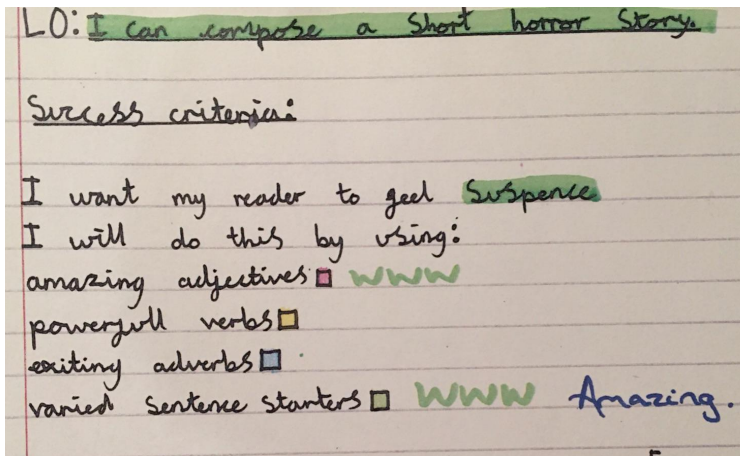 LO: I can compose a short horror story.
Success criteria:
I want my reader to feel suspence
I will do this by using:
amazing adjectives WWW
powerfull verbs
exiting adverbs
varied sentence starters WWW Amazing.